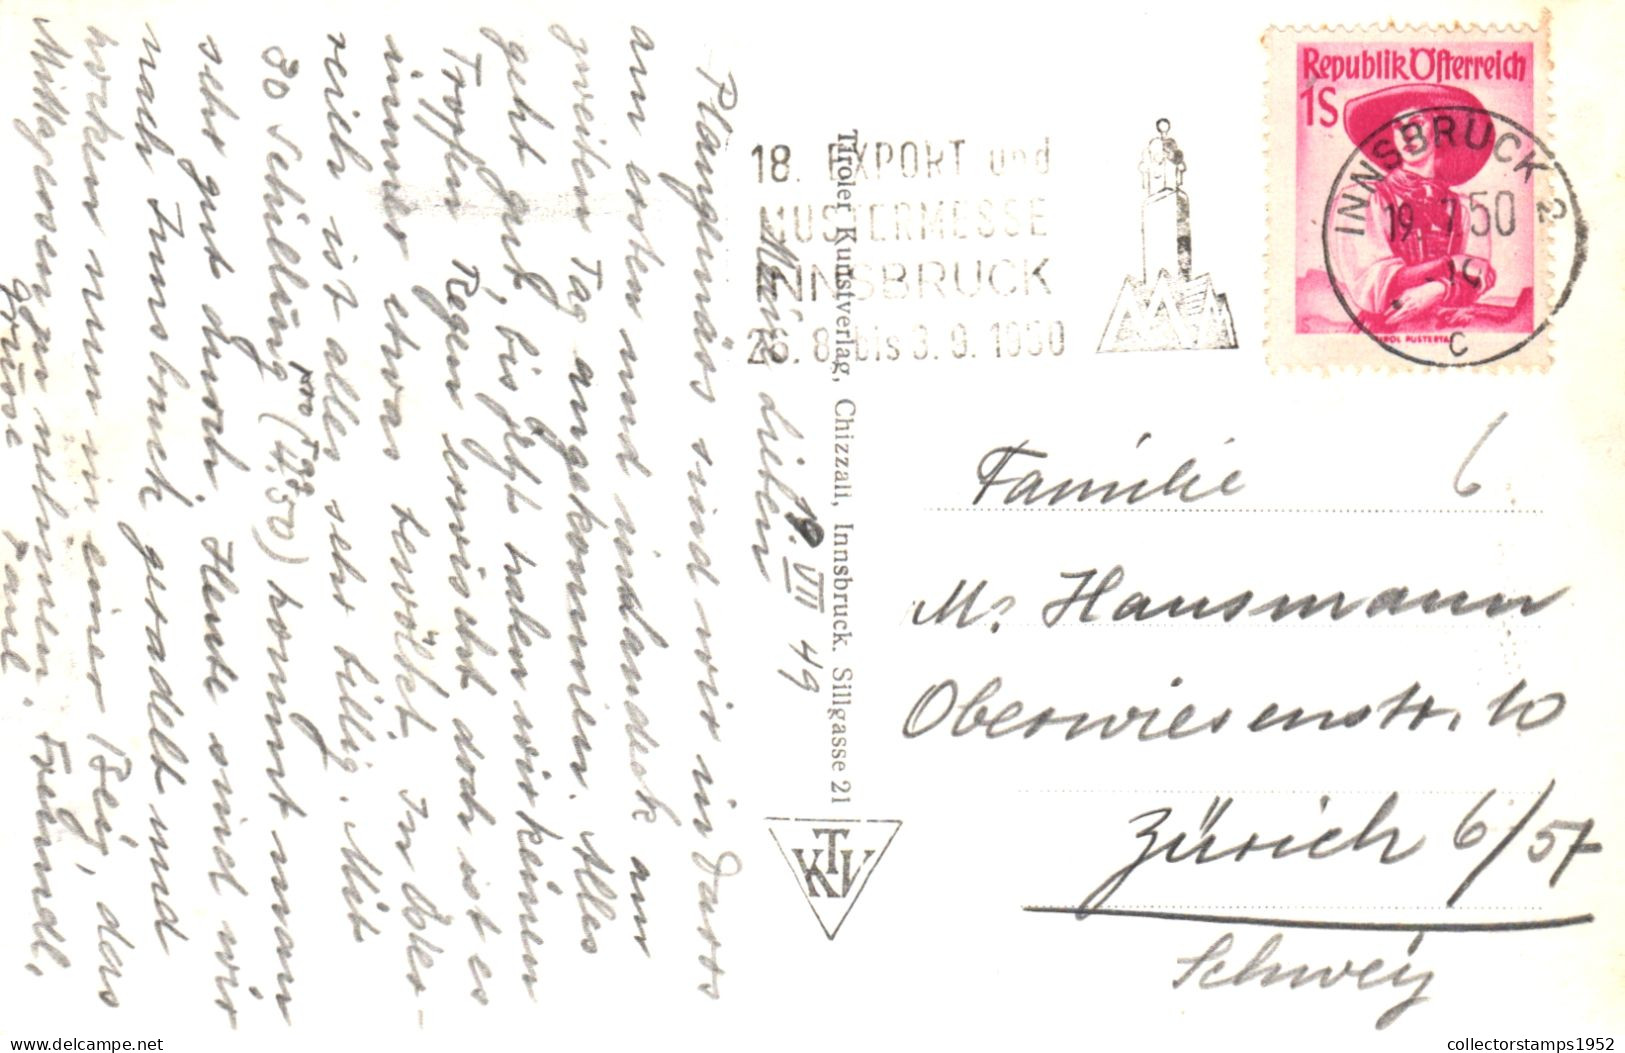 Republik Österreich
1S
TIROL PUSTERTAL
INNSBRUCK 2
19. 7. 50
C
18. EXPORT und
MUSTERMESSE
INNSBRUCK
26. 8. bis 3. 9. 1950
19. VII 49
Meine Lieben
Plangemäss sind wir in Davos
am ersten und in Landeck am
zweiten Tag angekommen. Alles
geht gut, bis jetzt haben wir keinen
Tropfen Regen erwischt doch ist es
immer etwas bewölkt. In Öster-
reich ist alles sehr billig. Mit
30 Schilling (4.50) kommt man
pro Tag
sehr gut durch. Heute sind wir
nach Innsbruck geradelt und
hocken nun in einer Beiz, das
Mittagessen zu nehmen. Freundl.
Grüsse Paul.
Tiroler Kunstverlag, Chizzali, Innsbruck. Sillgasse 21
KTV
Familie 6
M. Hausmann
Oberwiesenstr. 10
Zürich 6/57
Schweiz
The Delcampe Website
collectorstamps1952